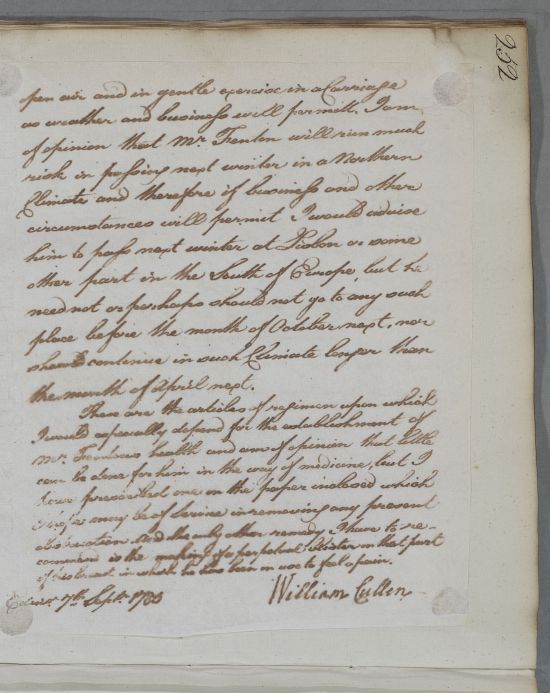 252
pen air and in gentle exercise in a Carriage
as weather and business will permitt. I am
of opinion that Mr. Trenton will run much
risk in passing next winter in a Northern
Climate and therefore if business and other
circumstances will permit I would advise
him to pass next winter at Lisbon or some
other part in the South of Europe, but he
need not or perhaps should not go to any such
place before the month of October next, nor
should continue in such Climate longer than
the month of April next.
These are the articles of regimen upon which
I would especially depend for the establishment of
Mr. health and am of opinion that little
can be done for him in the way of medicine, but I
have prescribed one in the paper inclosed which
I hope may be of service in removing any present
And the only other remedy I have to re-
commend is the making of a perpetual Blister on that part
of his breast in which he has been in use to feel a pain.
7th. Sept.
William Cullen